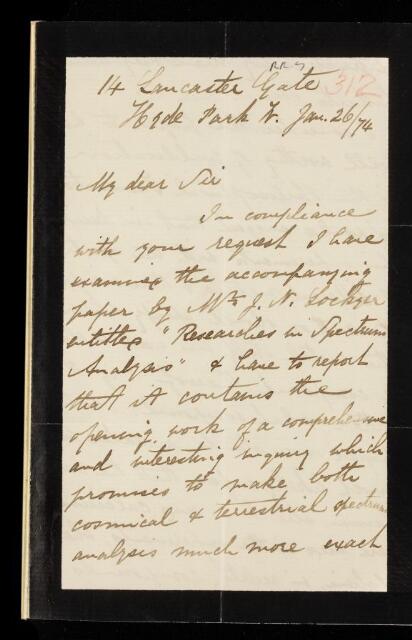 RR 7
312
14 Lancaster Gate
Hyde Park W. Jan. 26/74
My dear Sir
In compliance
with your request I have
examined the accompanying
paper by Mr. J. N. Lockyer
entitled "Researches in Spectrum
Analysis" & have to report
that it contains the
opening work of a comprehensive
and interesting inquiry which
promises to make both
cosmical & terrestrial spectrum
analysis much more exact